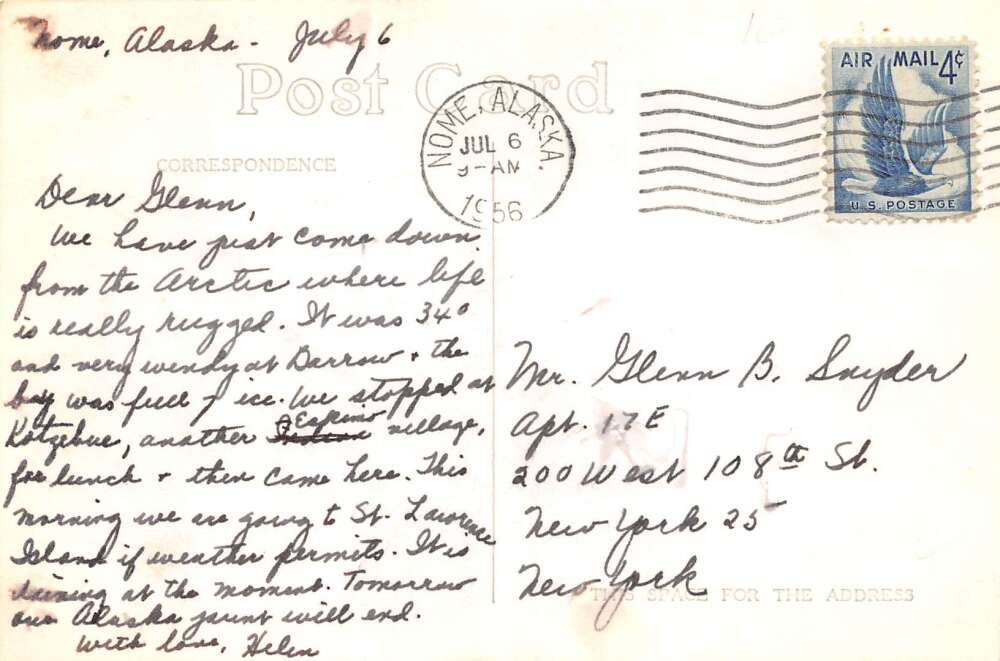 Nome, Alaska - July 6
Post Card
CORRESPONDENCE
Dear Glenn,
We have just come down
from the Arctic where life
is really rugged. It was 34°
and very windy at Barrow + the
bay was full of ice. We stopped at
Kotzebue, another Eskimo village,
for lunch + then came here. This
morning we are going to St. Lawrence
Island if weather permits. It is
raining at the moment. Tomorrow
our Alaska jaunt will end.
With love, Helen
NOME, ALASKA.
JUL 6
9-AM
1956
AIR MAIL 4¢
U.S. POSTAGE
Mr. Glenn B. Snyder
Apt. 17E
200 West 108th St.
New York 25
New York
THIS SPACE FOR THE ADDRESS